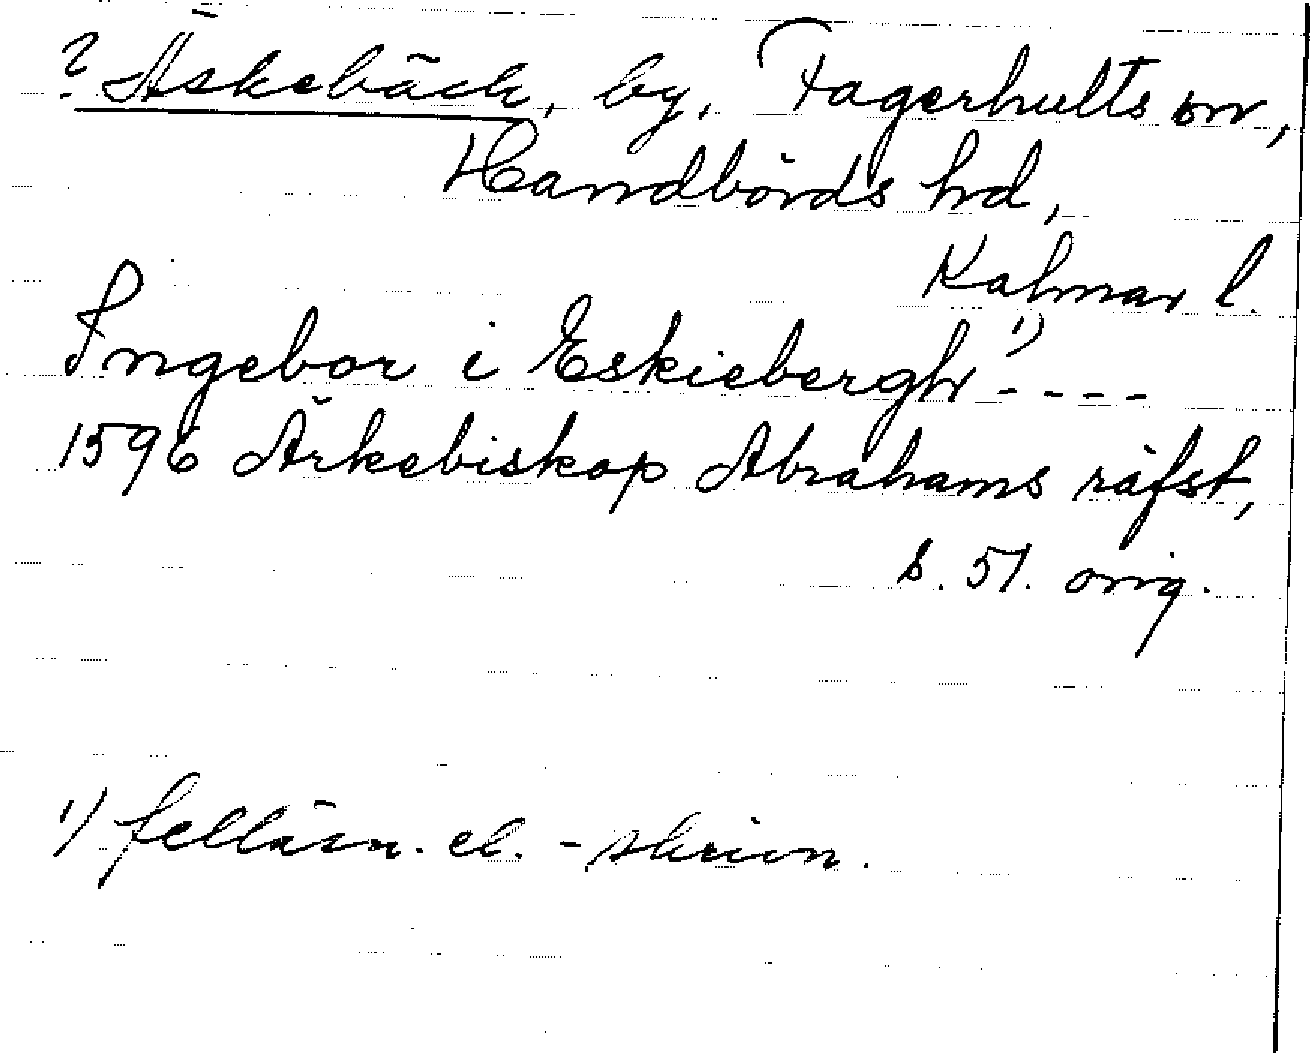 ? Äskebäck, by, Fagerhults sn,
Handbörds hd,
Kalmar l.
Ingebor i Eskiebergh 1) ----
1596 Ärkebiskop Abrahams räfst,
s. 51. orig.
1) felläsn. el. -skrivn.